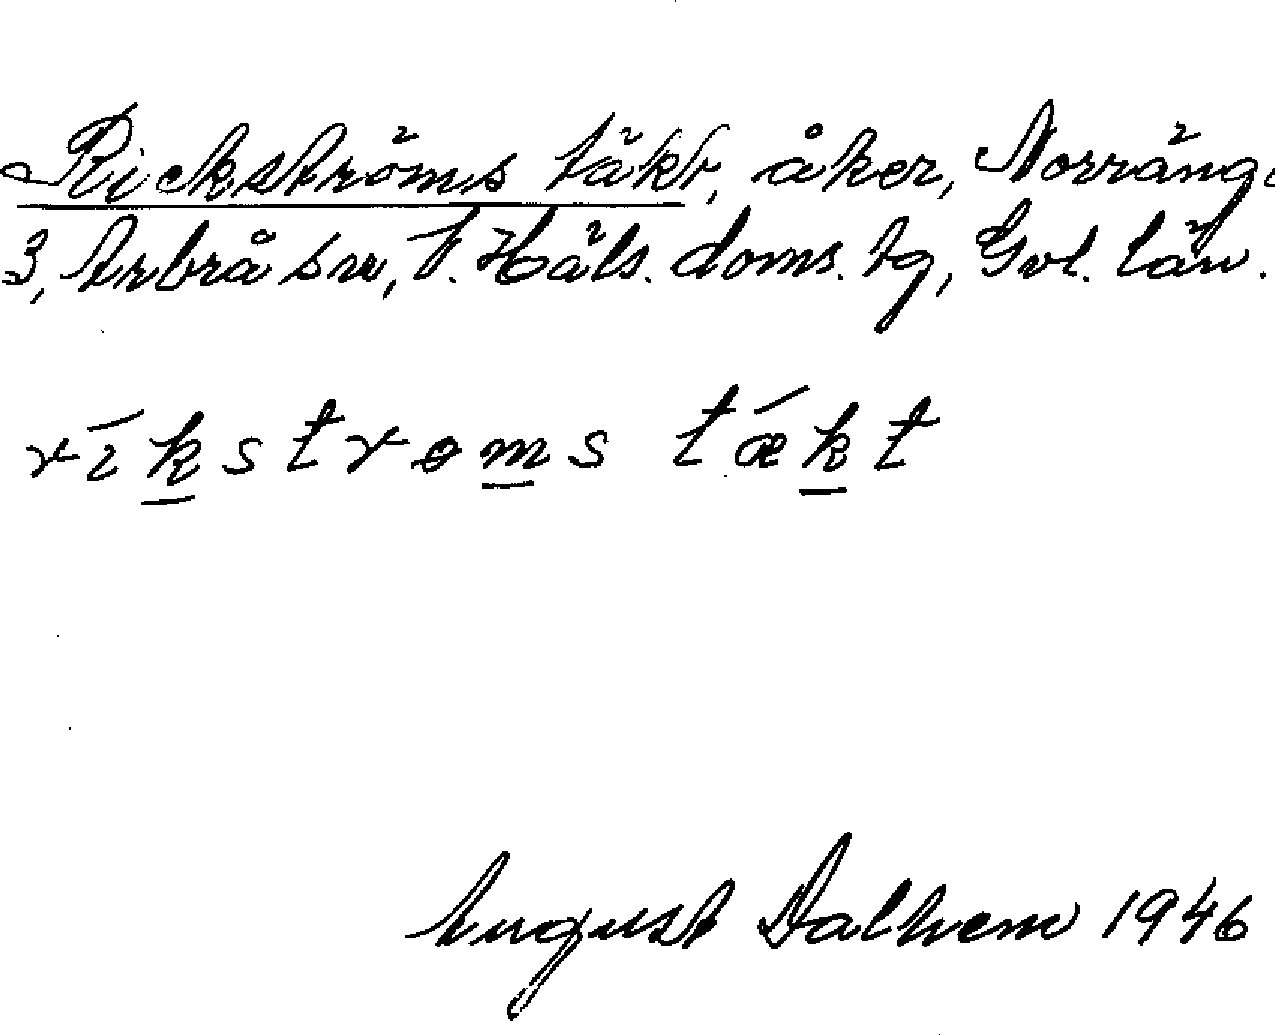 Rickströms täkt, åker, Norränge
3, Arbrå sn, V. Häls. doms. tg, Gvl. län.
rīkstrɵms tǽkt
August Dalhem 1946